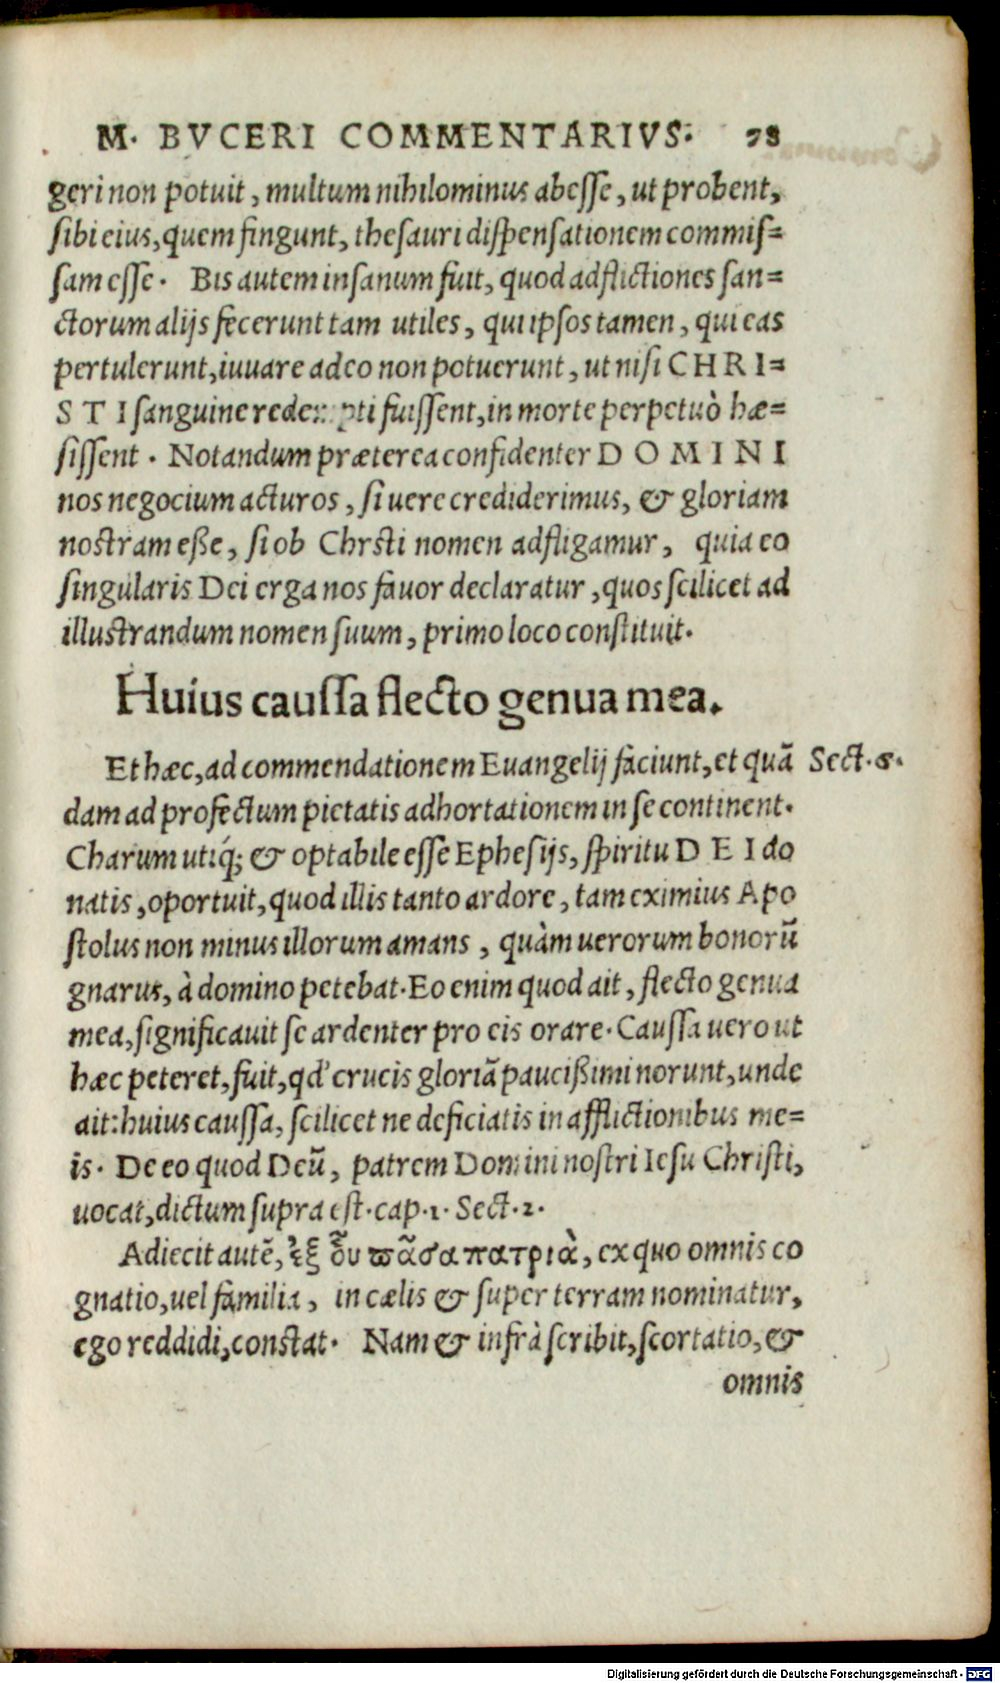 M. BVCERI COMMENTARIVS. 78
geri non potuit, multum nihilominus abesse, ut probent,
sibi eius, quem fingunt, thesauri dispensationem commis=
sam esse. Bis autem insanum fuit, quod adflictiones san=
ctorum alijs fecerunt tam utiles, qui ipsos tamen, qui eas
pertulerunt, iuuare adeo non potuerunt, ut nisi CHRI=
STI sanguine redempti fuissent, in morte perpetuò hæ=
sissent. Notandum præterea confidenter DOMINI
nos negocium acturos, si uere crediderimus, & gloriam
nostram eße, si ob Chrsti nomen adfligamur, quia eo
singularis Dei erga nos fauor declaratur, quos scilicet ad
illustrandum nomen suum, primo loco constituit.
Huius caussa flecto genua mea.
Et hæc, ad commendationem Euangelij faciunt, et quã Sect. 6.
dam ad profectum pietatis adhortationem in se continent.
Charum utiq; & optabile esse Ephesijs, spiritu DEI do
natis, oportuit, quod illis tanto ardore, tam eximius Apo
stolus non minus illorum amans, quàm uerorum bonorũ
gnarus, à domino petebat. Eo enim quod ait, flecto genua
mea, significauit se ardenter pro eis orare. Caussa uero ut
hæc peteret, fuit, qd' crucis gloriã paucißimi norunt, unde
ait: huius caussa, scilicet ne deficiatis in afflictionibus me=
is. De eo quod Deũ, patrem Domini nostri Iesu Christi,
uocat, dictum supra est. cap. 1. Sect. 2.
Adiecit autẽ, ἐξ οὗ πᾶσα πατριὰ, ex quo omnis co
gnatio, uel familia, in cælis & super terram nominatur,
ego reddidi, constat. Nam & infrà scribit, scortatio, &
omnis
Digitalisierung gefördert durch die Deutsche Forschungsgemeinschaft - DFG